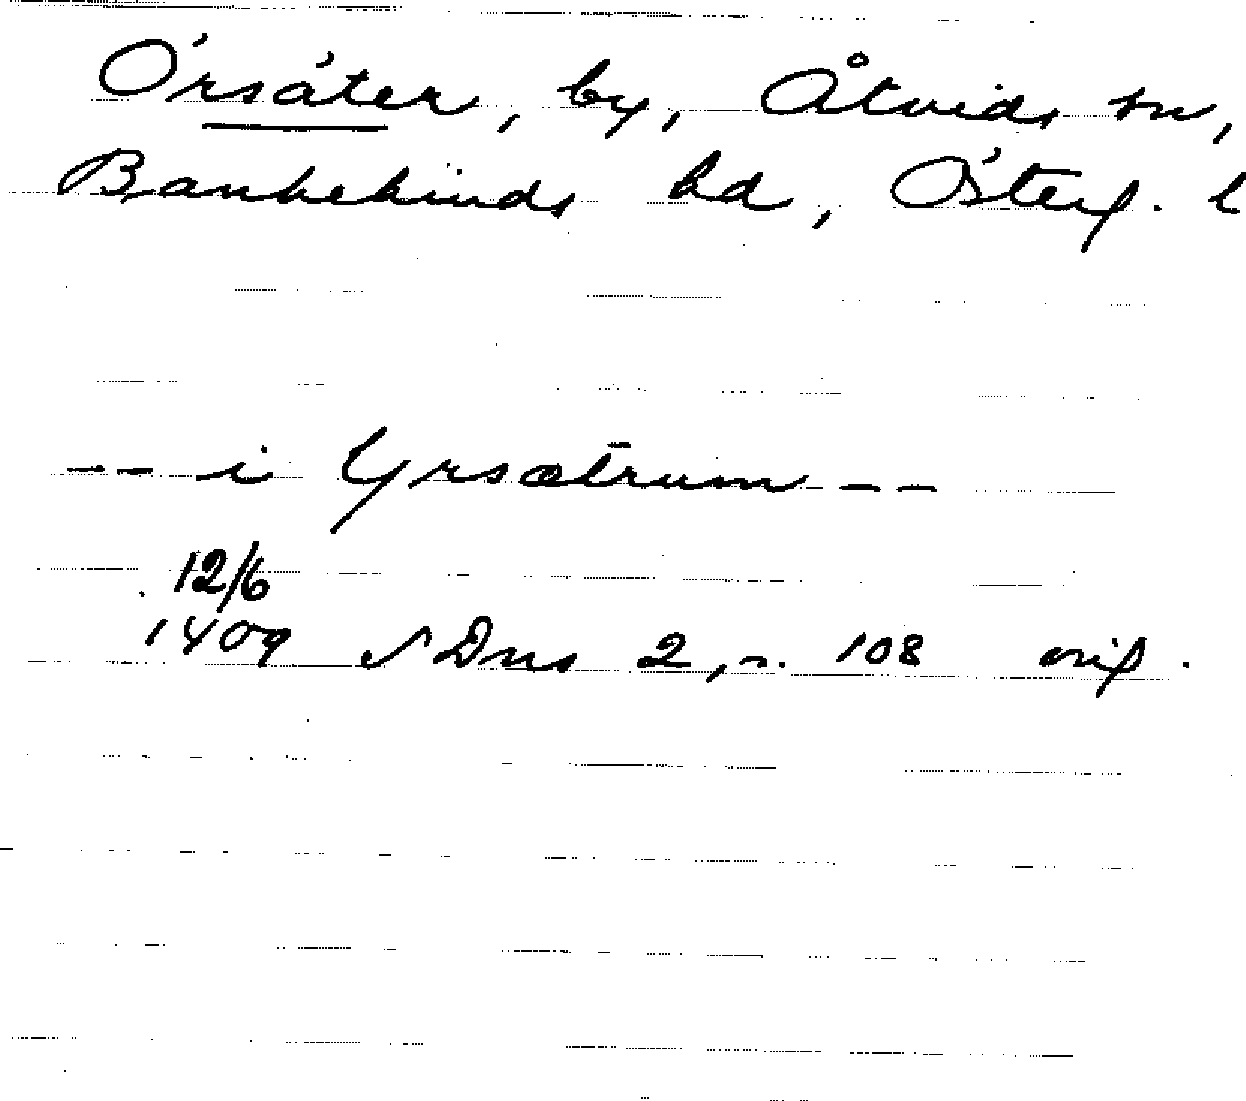 Örsäter, by, Åtvids sn,
Bankekinds hd, Österg. l
-- i Yrsætrum --
12/6
1409 SDns 2, n. 108 orig.